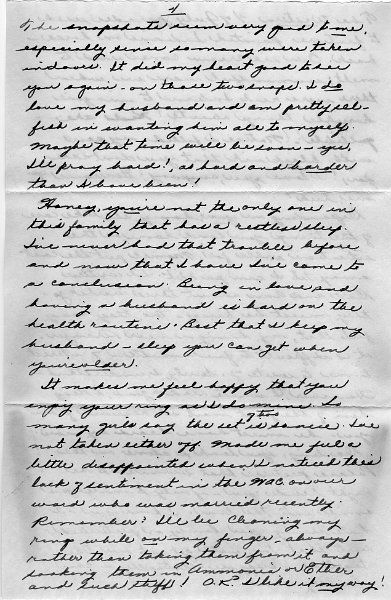 4
The snapshots seem very good to me,
especially since so many were taken
indoors. It did my heart good to see
you again - on those two snaps. I do
love my husband and am pretty sel-
fish in wanting him all to myself.
Maybe that time will be soon - yes,
I'll pray hard!, as hard and harder
than I have been!
Honey, you're not the only one in
this family that has a restless sleep.
I've never had that trouble before
and now that I have I've come to
a conclusion. Being in love and
having a husband is hard on the
health routine. Best that I keep my
husband - sleep you can get when
you're older.
It makes me feel happy that you
enjoy your ring as I do mine. So
many girls say the set is so nice. I've
not taken either off. Made me feel a
little disappointed when I noticed this
lack of sentiment in the WAC on our
ward who was married recently.
Remember? I'll be cleaning my
ring while on my finger - always -
rather than taking them from it and
soaking them in Ammonia or Ether
and such stuff! O.K. I like it my way!